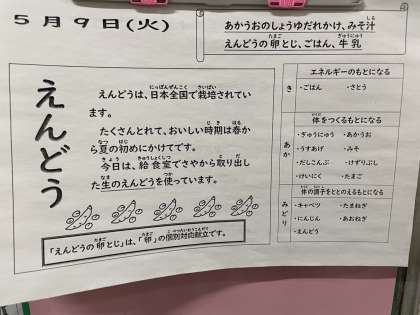 5月9日(火)
あかうおのしょうゆだれかけ、みそ汁
えんどうの卵とじ、ごはん、牛乳
えんどう
えんどうは、日本全国で栽培されています。
たくさんとれて、おいしい時期は春から夏の初めにかけてです。
今日は、給食室でさやから取り出した生のえんどうを使っています。
「えんどうの卵とじ」は、「卵」の個別対応献立です。
き
エネルギーのもとになる
・ごはん ・さとう
あか
体をつくるもとになる
・ぎゅうにゅう ・あかうお
・うすあげ ・みそ
・だしこんぶ ・けずりぶし
・けいにく ・たまご
みどり
体の調子をととのえるもとになる
・キャベツ ・たまねぎ
・にんじん ・あおねぎ
・えんどう